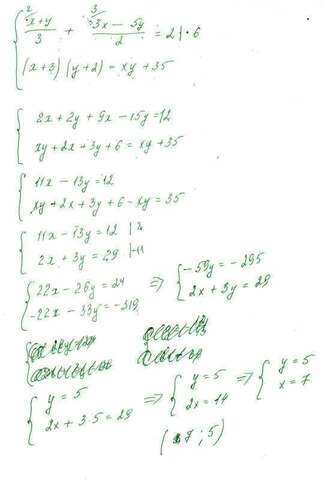 2 3
x+y/3 + 3x-5y/2 = 2 |·6
(x+3)(y+2) = xy+35
2x+2y+9x-15y=12
xy+2x+3y+6=xy+35
11x-13y=12
xy+2x+3y+6-xy=35
11x-13y=12 | 2
2x+3y=29 |-11
22x-26y=24 ⇒ -59y=-295
-22x-33y=-319 2x+3y=29
y=5 ⇒ y=5 ⇒ y=5
2x+3·5=29 2x=14 x=7
(7;5)